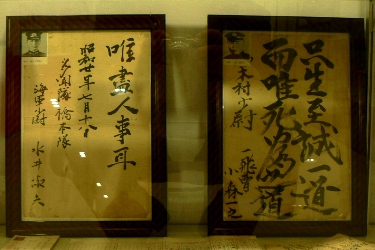 只生至誠一道
而唯死
道
木村少尉
一飛曹 小森一之
唯盡人事耳
昭和廿年七月十八
多聞隊橋本隊
海軍少尉 水井淑夫